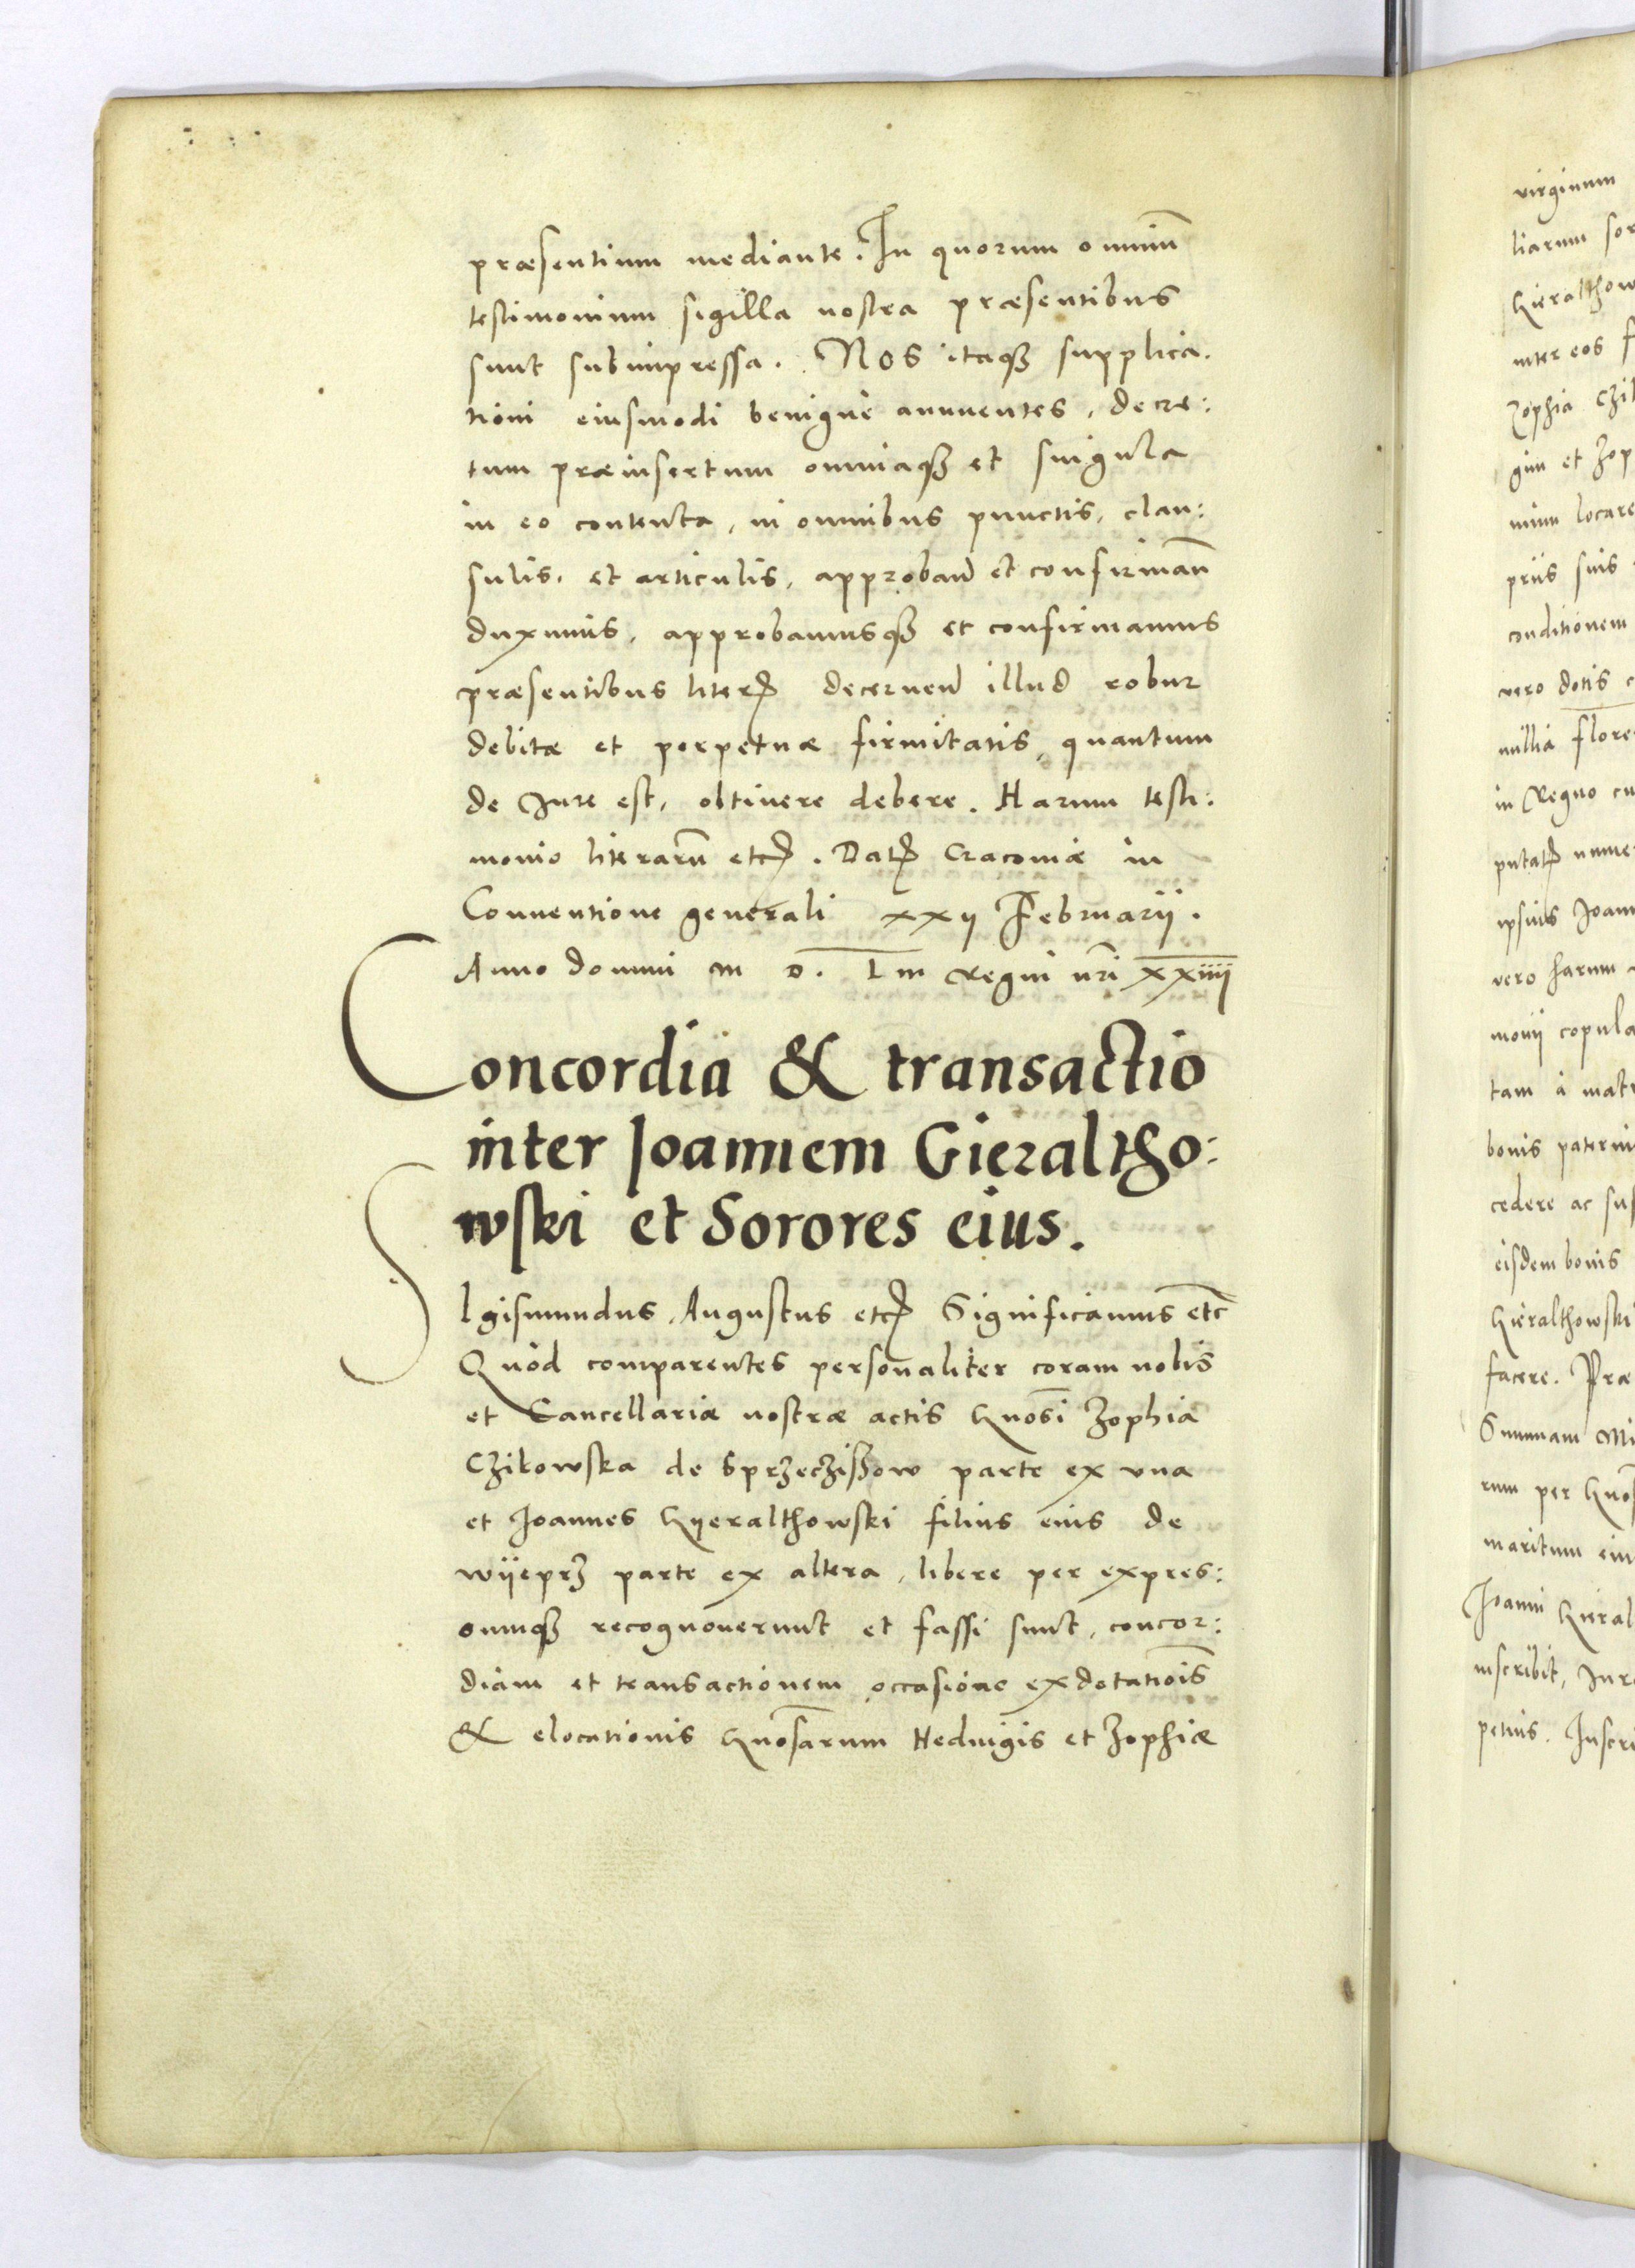 præsentium mediante. In quorum omniũ
testimonium sigilla nostra præsentibus
sunt subimpressa. Nos itaqꝫ supplica.
tioni eiusmodi benignè annuentes, decre:
tum præinsertum omniaqꝫ et singula
in eo contenta, in omnibus punctis, clau:
sulis, et articulis, approband et confirmañ
duximus, approbamusqꝫ et confirmamus
præsentibus literꝭ decernend illud robur
debitæ et perpetuæ firmitatis, quantum
de Jure est, obtinere debere. Harum testi:
monio literarũ etcꝭ. Datꝭ Cracoviæ in
Conventione generali xxij Februarij.
Anno domini M D. L III Regni nr̃i xxiiij
Concordia & transactio
inter Joannem Gieraltho:
wski et Sorores eius.
SIgismundus Augustus etcꝭ Significamus etc̃
Quòd comparentes personaliter coram nobis
et Cancellariæ nostræ actis Gnosi Zophia
Czikowska de Sprzeczissow parte ex una
et Joannes Gyeralthowski filius eius de
wijeprz parte ex altera, libere per expres:
sumqꝫ recognoverunt et fassi sunt, concor:
diam et transactionem occasione exdotatiõis
& elocationis Gnosarum Hedvigis et Zophiæ
virginum
liarum sor
Gieralthow
inter eos f
Zophia Czik
gini et Zop
minu locare
priis suis
conditionem
vero dotis c
millia flore
in Regno cu
putatꝭ nume
ipsius Joann
vero harum
monij copula
tam à matr
bonis paterni
cedere ac sus
eisdem bonis
Gieralthowski
facere. Præ
Summam Mi
rum per Gnos
maritum eiu
Joanni Gieral
inscribit, Jure
petuis. Inscri